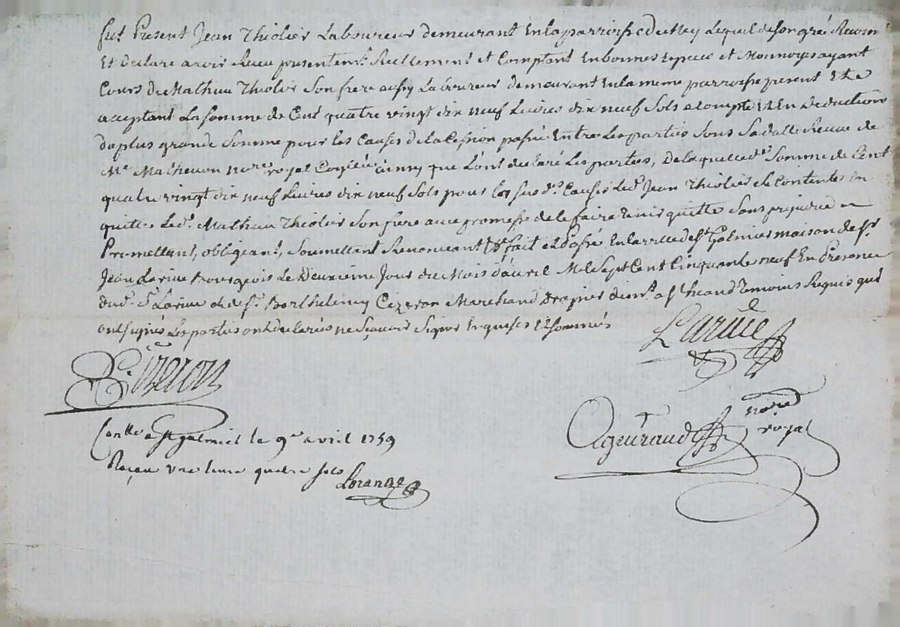 fut Present Jean Thiolier Laboureur demeurant En la parroisse de Lequel de son gré Reconn
Et declare avoir Receu presentemt Reellement et Comptant En bonnes especes et Monnoyes ayant
Cours de Mathieu Thiolier Son frere aussy Laboureur demeurant En la meme parroisse present Et
acceptant La somme de Cent quatre vingt dix neuf Livres dix neuf Sols a Compte Et En deduction
de plus grande Somme pour les Causes de la Cession passée Entre Les parties Sous Sa datte Receue de
Me Matheuon nore royal ainsy que L'ont declaré Les parties, de laquelle de Somme de Cent
quatre vingt dix neuf Livres dix neuf Sols pour les sus des Causes Led. Jean Thiolier Se Contente En
quitte Led. Mathieu Thiolier Son frere avec promesse de le faire tenir quitte Sans prejudice
Promettant, obligeant, Soumettant Renonceant fait et passé En la ville de St Galmier maison de Sr
Jean Larue Bourgeois Le Deuxieme Jour du Mois d'avril Mil Sept Cent Cinquante neuf En Presence
dud. Sr Larue et de Sr Barthelemy Cizeron Marchand Drapier dud. St temoins Requis qui
ont signés Les parties ont declarés ne Sçavoir Signer Enquises Et Sommés
Larue
Cizeron
Ageuraud nore royal
Conllé a St galmier le 9e avril 1759
Reçeu une livre quatre sols
Lorange